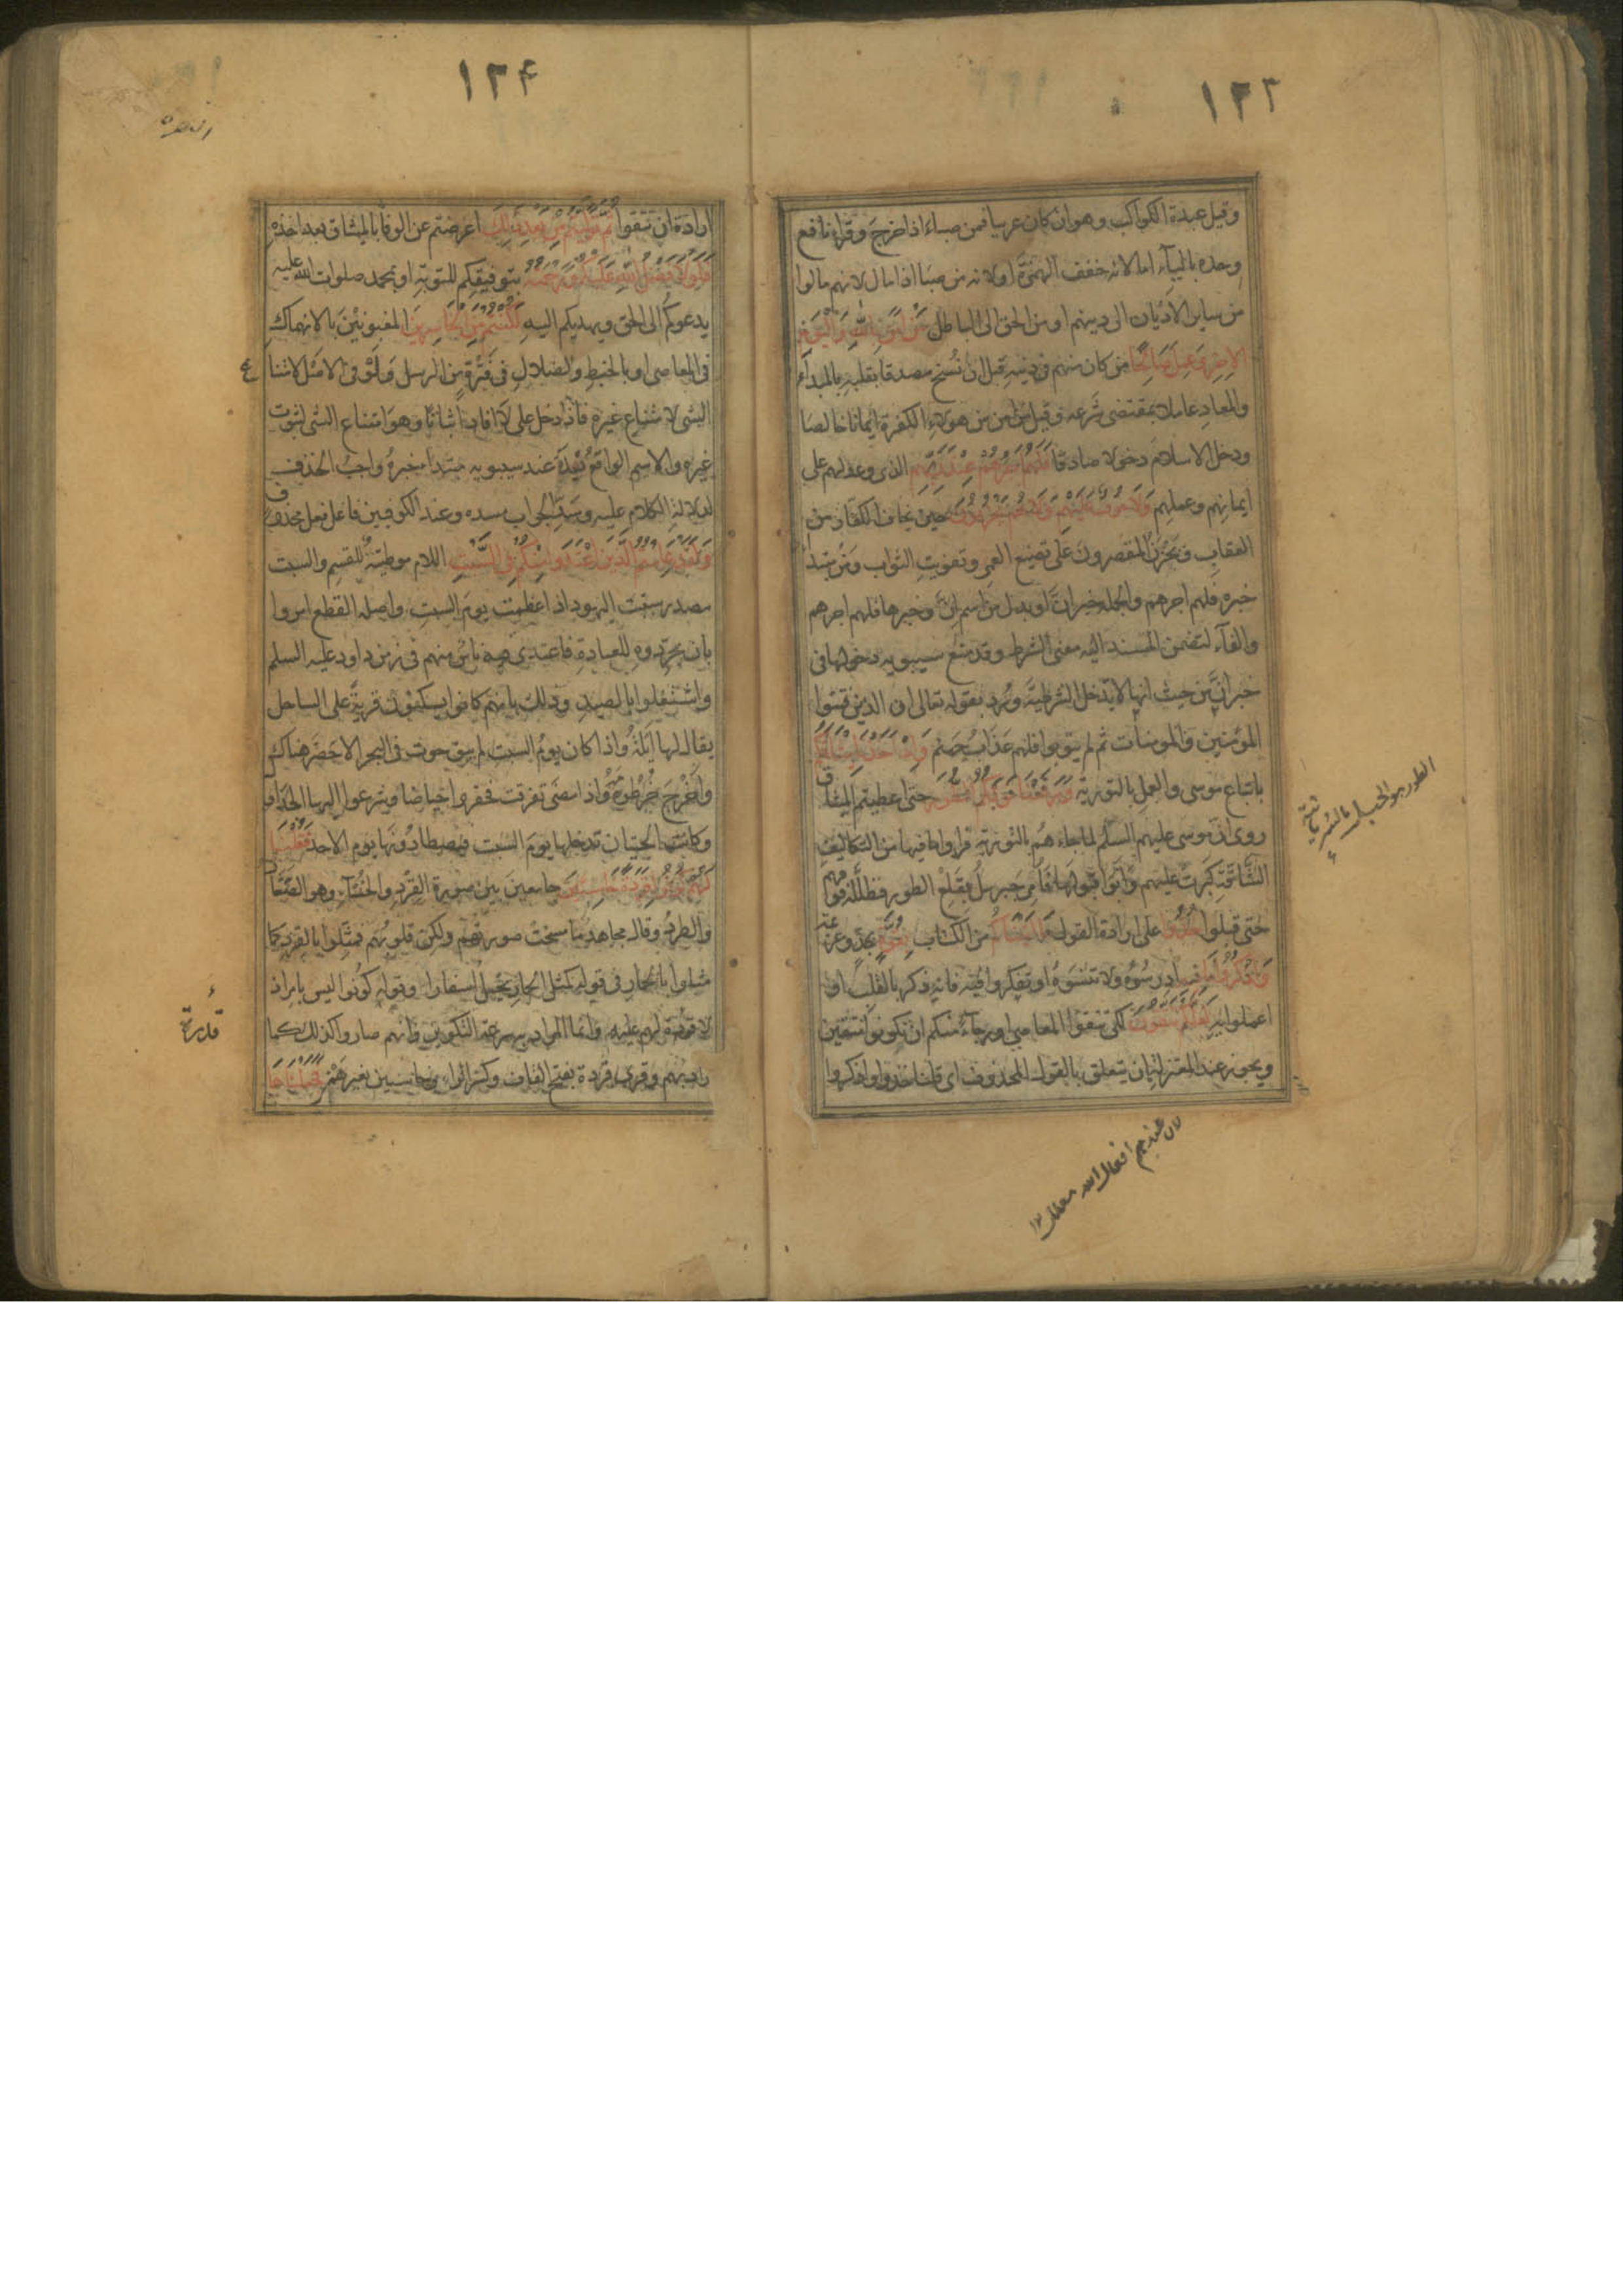 ١٢٣
وقيل عبدة الكواكب وهو ان كان عربيا فمن صباء اذا خرج وقراء نافع
وحده بالياء اما لانه خفف الهمزة او لانه من صبا اذا مال لانهم مالوا
من ساير الاديان الى دينهم او من الحق الى الباطل مَنْ اٰمَنَ بِاللّٰهِ وَالْيَوْمِ
الاٰخِرِ وَعَمِلَ صَالِحًا من كان منهم في دينه قبل ان نُسخ مصدقا بقلبه بالمبداء
والمعاد عاملا بمقتضى شرعه وقيل من امن من هولاء الكفرة ايمانا خالصا
ودخل الاسلام دخولا صادقا فَلَهُمْ اَجْرُهُمْ عِنْدَ رَبِّهِمْ الذى وعد لهم على
ايمانهم وعملهم وَلَا خَوْفٌ عَلَيْهِمْ وَلَا هُمْ يَحْزَنُونَ حين يخاف الكفار من
العقاب ويحزن المقصرون على تضيع العمر وتفويت الثواب ومن مبتدأ
خبره فلهم اجرهم والجملة خبر ان او بدل من اسم ان وخبرها فلهم اجرهم
والفاء لتضمن المسند اليه معنى الشرط وقد منع سيبويه دخولها في
خبر ان من حيث انها لا تدخل الشرطية ورد بقوله تعالى ان الذين فتنوا
المؤمنين والمومنات ثم لم يتوبوا فلهم عذاب جهنم وَاِذْ اَخَذْنَا مِيثَاقَكُمْ
باتباع موسى والعمل بالتورية وَرَفَعْنَا فَوْقَكُمُ الطُّورَ حتى اعطيتم الميثاق
روى ان موسى عليهم السلم لما جاءهم بالتورية فراوا ما فيها من التكاليف
الشاقة كبرت عليهم وابوا قبولها فامر جبريل بقلع الطور فظلله فوقهم
حتى قبلوا خُذُوا على ارادة القول مَا اٰتَيْنَاكُمْ من الكتاب بِقُوَّةٍ بجد وعزيمة
وَاذْكُرُوا مَا فِيهِ ادرسوه ولا تنسوه او تفكروا فيه فانه ذكر بالقلب او
اعملوا به لَعَلَّكُمْ تَتَّقُونَ لكى تتقوا المعاصى او رجاء منكم ان تكونوا متقين
ويجوز عند المعتزلة ان يتعلق بالقول المحذوف اى قلنا خذوا واذكروا
الطور هو الجبل بالسريانية
لان عندهم افعال الله معلل ١٢
١٢٤
البقره
ارادة ان تتقوا ثُمَّ تَوَلَّيْتُمْ مِنْ بَعْدِ ذٰلِكَ اعرضتم عن الوفا بالميثاق بعد اخذه
فَلَوْلَا فَضْلُ اللّٰهِ عَلَيْكُمْ وَرَحْمَتُهُ بتوفيقكم للتوبة او بمحمد صلوات الله عليه
يدعوكم الى الحق ويهديكم اليه لَكُنْتُمْ مِنَ الْخَاسِرِينَ المغبونين بالانهماك
في المعاصى او بالخبط والضلال فى فترة من الرسل ولو فى الاصل لامتناع
الشى لامتناع غيره فاذا دخل على لا افاد اثباتا وهو امتناع الشى لثبوت
غيره والاسم الواقع بعده عند سيبويه مبتدأ خبره واجب الحذف
لدلالة الكلام عليه وسد الجواب مسده وعند الكوفيين فاعل فعل محذوف
وَلَقَدْ عَلِمْتُمُ الَّذِينَ اعْتَدَوْا مِنْكُمْ فِى السَّبْتِ اللام موطية للقسم والسبت
مصدر سبتت اليهود اذا عظمت يوم السبت واصله القطع امروا
بان يجردوه للعبادة فاعتدى فيه ناس منهم فى زمن داود عليه السلم
واشتغلوا بالصيد وذلك بانهم كانوا يسكنون قرية على الساحل
يقال لها ايلة واذا كان يوم السبت لم يبق حوت فى البحر الا حضر هناك
واخرج خرطومه واذا مضى تفرقت فحفروا حياضا وشرعوا اليها الجداول
وكانت الحيتان تدخلها يوم السبت فيصطادونها يوم الاحد فَقُلْنَا
لَهُمْ كُونُوا قِرَدَةً خَاسِئِينَ جامعين بين صورة القرد والخسأ وهو الصغار
والطرد وقال مجاهد ما مسخت صورتهم ولكن قلوبهم فمثلوا بالقرد كما
مثلوا بالحمار فى قوله كمثل الحمار يحمل اسفارا وقوله كونوا ليس بامر اذ
لا قدرة لهم عليه وانما المراد به سرعة التكوين وانهم صاروا كذلك كما
اراد بهم وقرى قردة بفتح القاف وكسر الراء وخاسين بغير همز فَجَعَلْنَاهَا
ع
قدرة